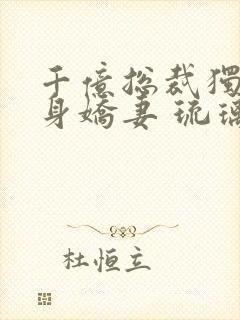 千億总裁獨
身嬌妻 琉璃
杜恒立